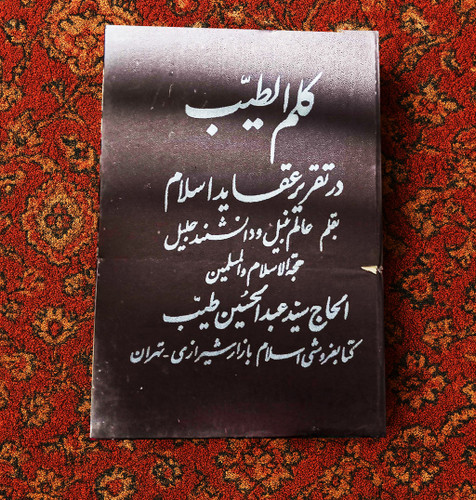 کلم الطیّب
در تقریر عقاید اسلام
بقلم عالم نبیل و دانشمند جلیل
حجة الاسلام والمسلمین
الحاج سید عبدالحسین طیّب
کتابفروشی اسلام بازار شیرازی - تهران